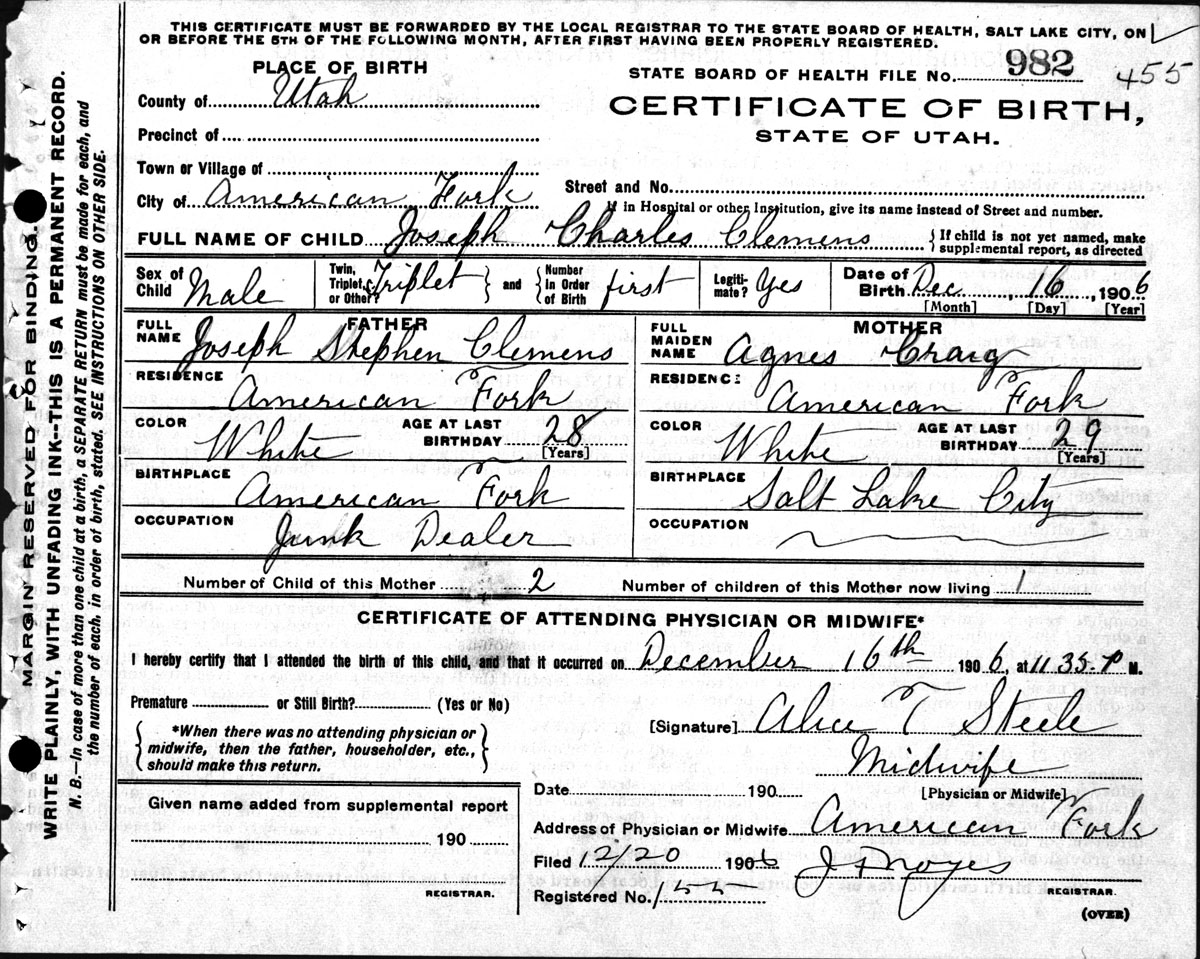 THIS CERTIFICATE MUST BE FORWARDED BY THE LOCAL REGISTRAR TO THE STATE BOARD OF HEALTH, SALT LAKE CITY, ON
OR BEFORE THE 5TH OF THE FOLLOWING MONTH, AFTER FIRST HAVING BEEN PROPERLY REGISTERED.
PLACE OF BIRTH
STATE BOARD OF HEALTH FILE No. 982 455
County of Utah
CERTIFICATE OF BIRTH,
Precinct of
STATE OF UTAH.
Town or Village of
City of American Fork
Street and No.
If in Hospital or other Institution, give its name instead of Street and number.
FULL NAME OF CHILD Joseph Charles Clemens
{If child is not yet named, make supplemental report, as directed
Sex of Child Male
Twin, Triplet, or Other? Triplet } and { Number in Order of Birth first
Legitimate? Yes
Date of Birth Dec 16, 1906
[Month] [Day] [Year]
FATHER
FULL NAME Joseph Stephen Clemens
RESIDENCE American Fork
COLOR White AGE AT LAST BIRTHDAY 28
[Years]
BIRTHPLACE American Fork
OCCUPATION Junk Dealer
MOTHER
FULL MAIDEN NAME Agnes Craig
RESIDENCE American Fork
COLOR White AGE AT LAST BIRTHDAY 29
[Years]
BIRTHPLACE Salt Lake City
OCCUPATION
Number of Child of this Mother 2 Number of children of this Mother now living 1
CERTIFICATE OF ATTENDING PHYSICIAN OR MIDWIFE*
I hereby certify that I attended the birth of this child, and that it occurred on December 16th 1906, at 11 35 P M.
Premature or Still Birth? (Yes or No)
{ *When there was no attending physician or
midwife, then the father, householder, etc.,
should make this return. }
[Signature] Alice T Steele
Midwife
[Physician or Midwife]
Date 190
Given name added from supplemental report
190
REGISTRAR.
Address of Physician or Midwife American Fork
Filed 12/20 1906 J F Noyes
REGISTRAR.
Registered No. 155
(OVER)
MARGIN RESERVED FOR BINDING.
WRITE PLAINLY, WITH UNFADING INK--THIS IS A PERMANENT RECORD.
N. B.—In case of more than one child at a birth, a SEPARATE RETURN must be made for each, and
the number of each, in order of birth, stated. SEE INSTRUCTIONS ON OTHER SIDE.